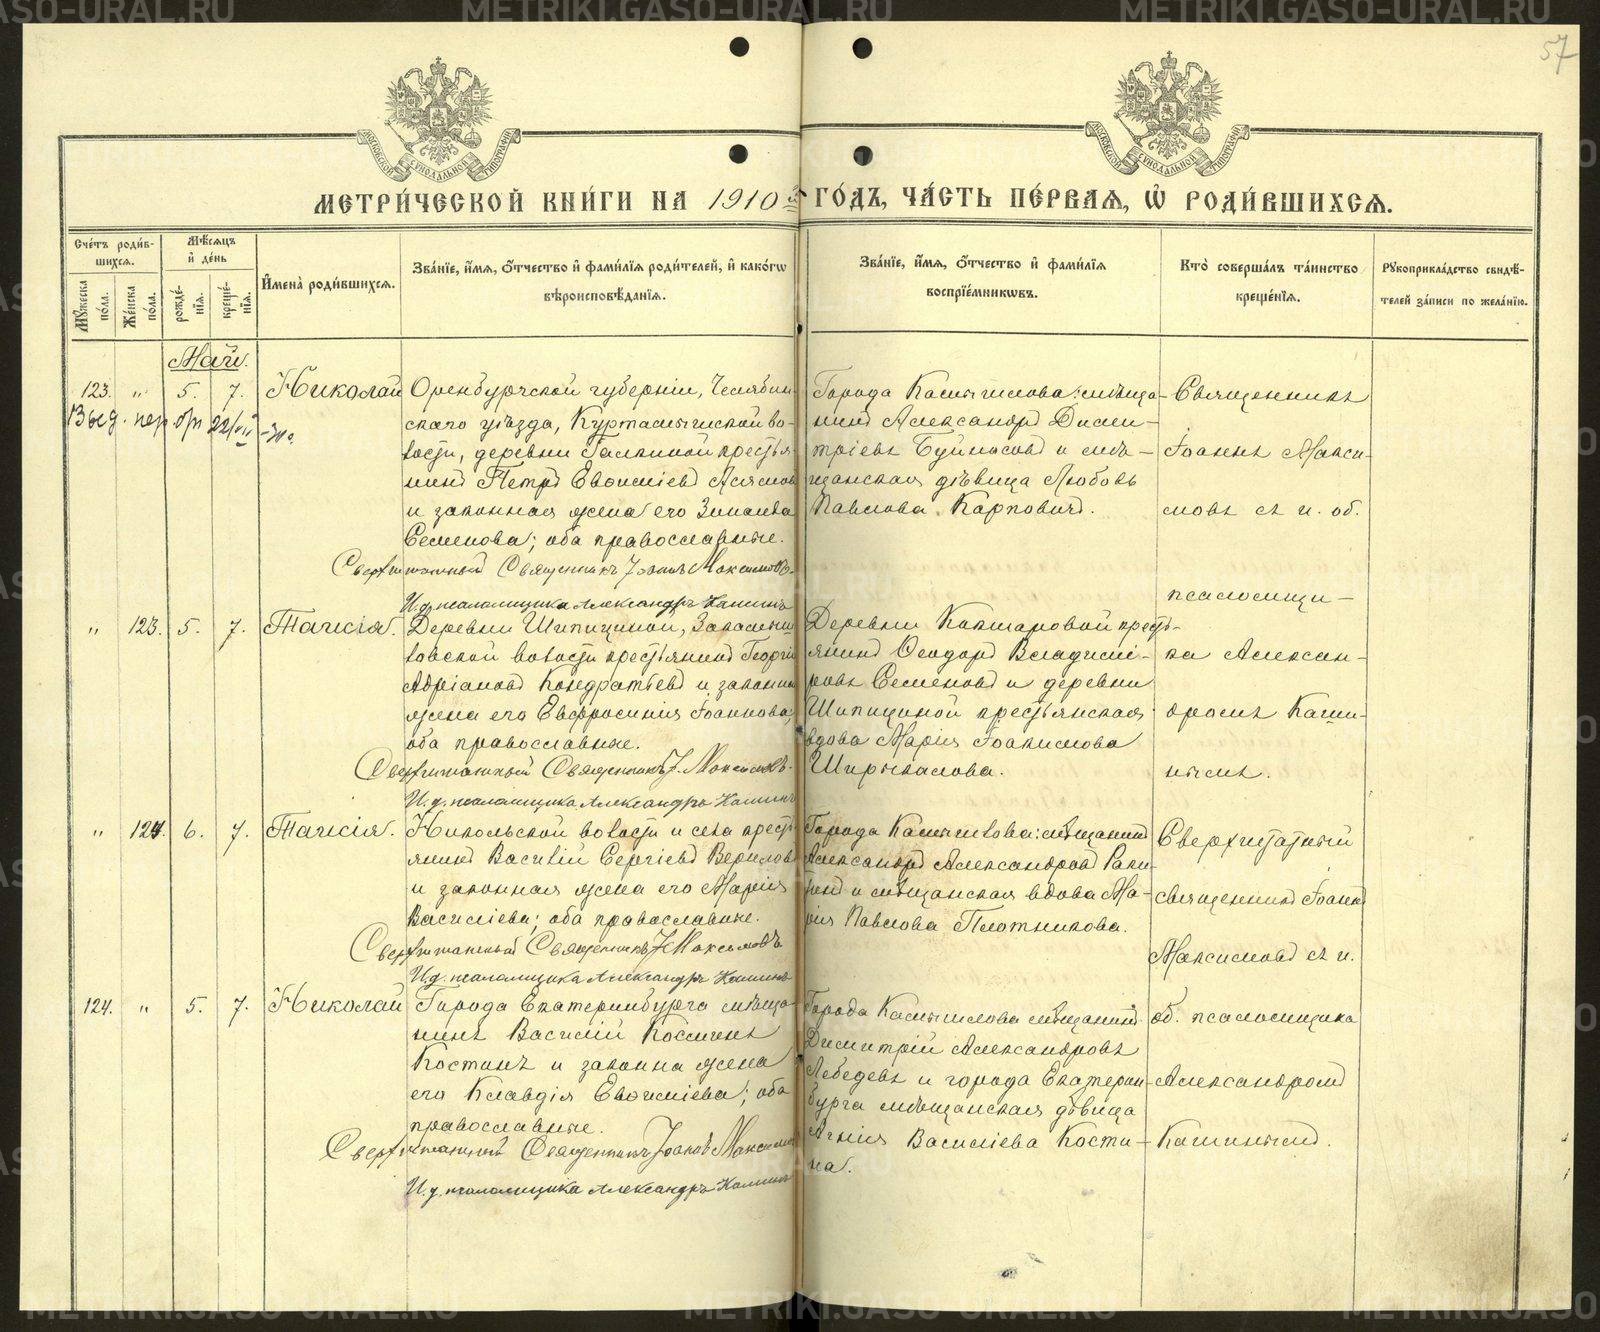 57
МЕТРИ́ЧЕСКОЙ КНИ́ГИ НА 1910 й ГО́ДЪ, ЧА́СТЬ ПЕ́РВАЯ, Ѽ РОДИ́ВШИХСЯ.
Сче́тъ роди́в-
шихся.
Мѣ́сяцъ
и де́нь
Мꙋ́жеска по́ла.
Же́нска по́ла.
рожде́-
нїя.
креще́-
нїя.
И҆мена̀ роди́вшихся.
Зва́нїе, и҆́мя, ѻ҆́тчество и҆ фами́лїя роди́телей, и҆ како́гѡ
вѣроисповѣ́данїя.
Зва́нїе, и҆́мя, ѻ҆́тчество и҆ фами́лїя
воспрїе́мникѡвъ.
Кто̀ соверша́лъ та́инство
креще́нїя.
Рꙋкоприкла́дство свидѣ́-
телей за́писи по жела́нїю.
Май.
123. " 5. 7. Николай
Выд.
Оренбургской губернiи, Челябин-
скаго уѣзда, Куртамышской во-
лости, деревни Галкиной крестья-
нинъ Петръ Евѳимiевъ
и законная жена его Зиновiя
Семенова; оба православные.
Сверхштатный Священникъ Iоаннъ Максимовъ.
И.д. псаломщика Александръ Кашинъ
Города Камышлова: мѣща-
нинъ Александръ Дими-
трiевъ и мѣ-
щанская дѣвица Любовь
Павлова Карповичъ.
Священникъ
Iоаннъ Макси-
мовъ съ и. об.
псаломщи-
" 123. 5. 7. Таисiя.
Деревни Шипициной, Закамыш-
ловской волости крестьянинъ Георгiй
Адрiановъ Кондратьевъ и законная
жена его Евфросинiя Iоаннова;
оба православные.
Сверхштатный Священникъ I. Максимовъ.
И.д. псаломщика Александръ Кашинъ
Деревни Кокшаровой кресть-
янинъ Ѳеодоръ Владимi-
ровъ Семеновъ и деревни
Шипициной крестьянская
вдова Марiя Iоакимова
Ширыкалова.
ка Алексан-
дромъ Каши-
нымъ.
" 124. 6. 7. Таисiя.
Никольской волости и села кресть-
янинъ Василiй Сергiевъ
и законная жена его Марiя
Василiева; оба православные.
Сверхштатный Священникъ I. Максимовъ
И.д. псаломщика Александръ Кашинъ
Города Камышлова: мѣщанинъ
Александръ Александровъ
и мѣщанская вдова Ма-
рiя Павлова Плотникова.
Сверхштатный
священникъ Iоаннъ
Максимовъ съ и.
124. " 5. 7. Николай
Города Екатеринбурга мѣща-
нинъ Василiй Косминъ
Костинъ и законная жена
его Клавдiя Евѳимiева; оба
православные.
Сверхштатный Священникъ Iоаннъ Максимовъ
И.д. псаломщика Александръ Кашинъ
Города Камышлова мѣщанинъ
Димитрiй Александровъ
Лебедевъ и города Екатерин-
бурга мѣщанская дѣвица
Агнiя Василiева Кости-
на.
об. псаломщика
Александромъ
Кашинымъ.